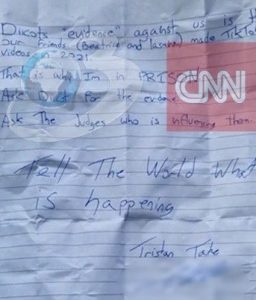 Diicots "evidence" against us is th
our friends (Beatrice and Iasmina) made TikTok
videos in 2021
That is why Im in PRISON
CNN
Ask The Judges who is influencing them.
Tell The World What
is happening
Tristan Tate